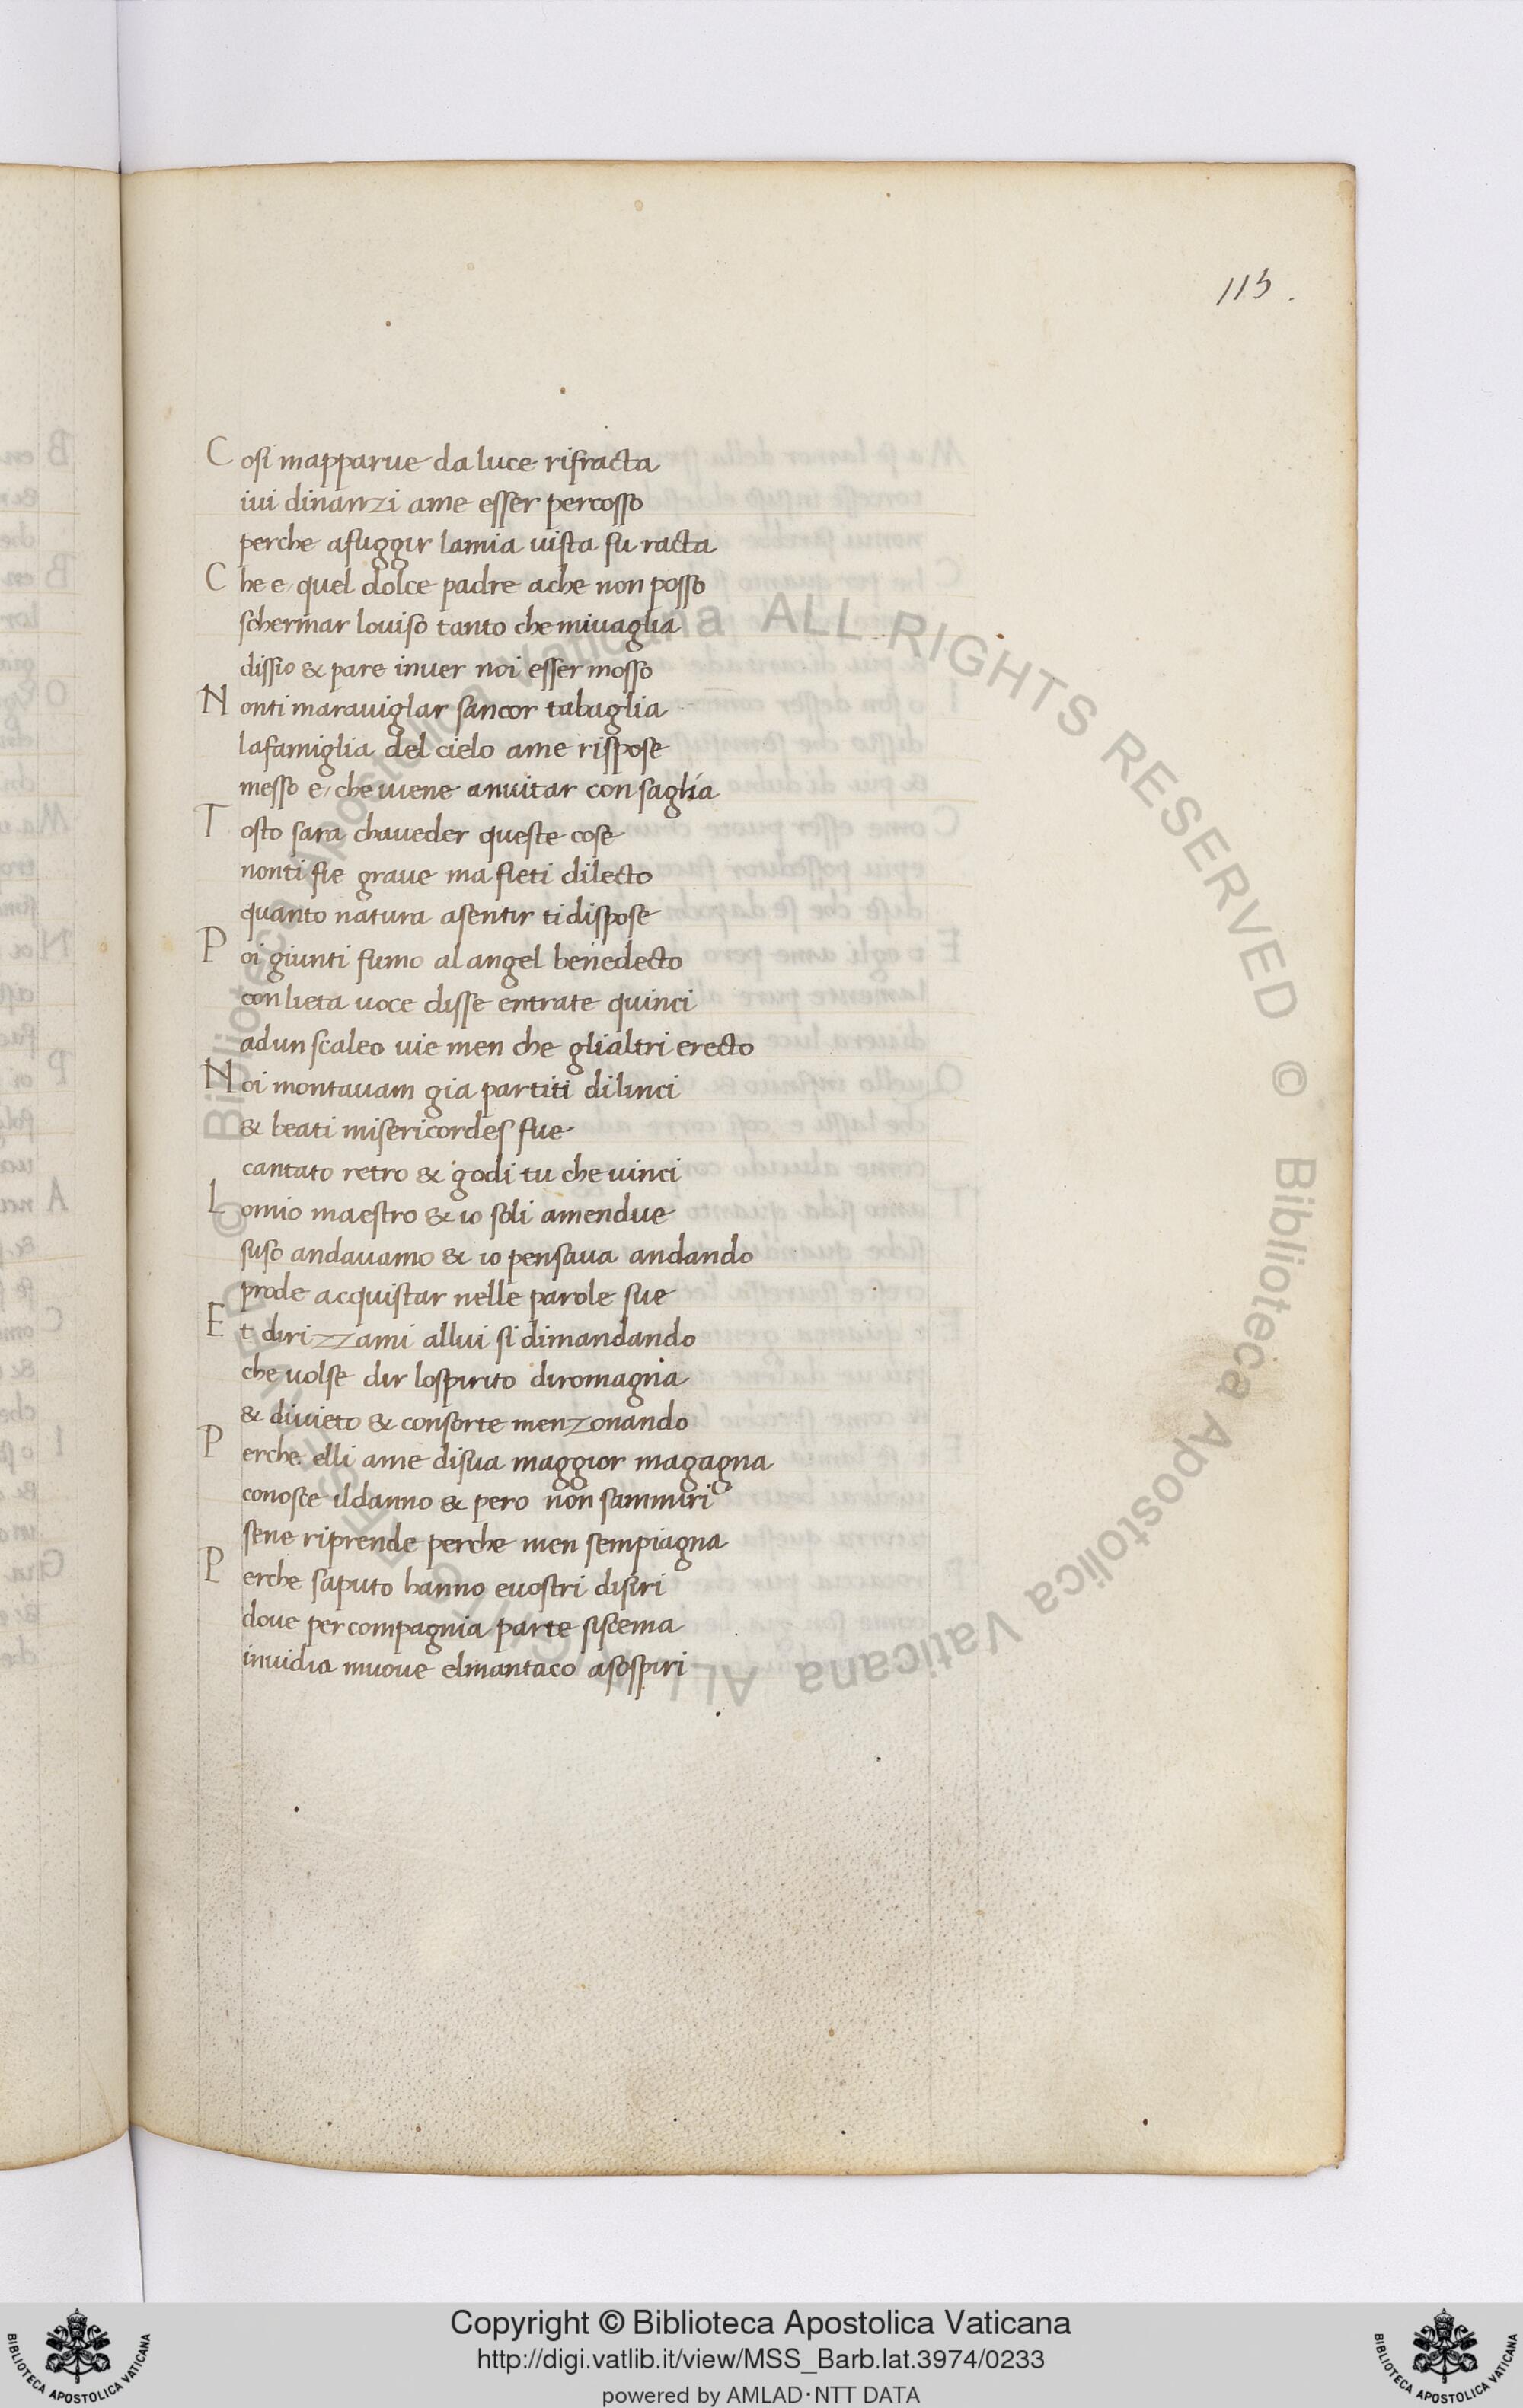 115.
Cosi mapparue da luce rifracta
iui dinanzi ame esser percosso
perche afuggir lamia uista fu racta
Che e quel dolce padre ache non posso
schermar louiso tanto che miuaglia
dissio & pare inuer noi esser mosso
Nonti marauiglar sancor tabaglia
lafamiglia del cielo ame rispose
messo e che uiene anuitar con saglia
Tosto sara chaueder queste cose
nonti fie graue ma fieti dilecto
quanto natura asentir ti dispose
Poi giunti fumo al angel benedecto
con lieta uoce disse entrate quinci
ad un scaleo uie men che glialtri erecto
Noi montauam gia partiti dilinci
& beati misericordes fue
cantato retro & godi tu che uinci
Lomio maestro & io soli amendue
suso andauamo & io pensaua andando
prode acquistar nelle parole sue
Et dirizzami allui si dimandando
che uolse dir lospirito diromagna
& diuieto & consorte menzonando
Perche elli ame disua maggior magagna
conosce ildanno & pero non sammiri
sene riprende perche men sempiagna
Perche saputo hanno euostri disiri
doue per compagnia parte siscema
inuidia muoue elmantaco asospiri
© Biblioteca Apostolica Vaticana ALL RIGHTS RESERVED © Biblioteca Apostolica Vaticana ALL RIGHTS RESERVED
Copyright © Biblioteca Apostolica Vaticana
http://digi.vatlib.it/view/MSS_Barb.lat.3974/0233
powered by AMLAD·NTT DATA
BIBLIOTECA APOSTOLICA VATICANA
BIBLIOTECA APOSTOLICA VATICANA